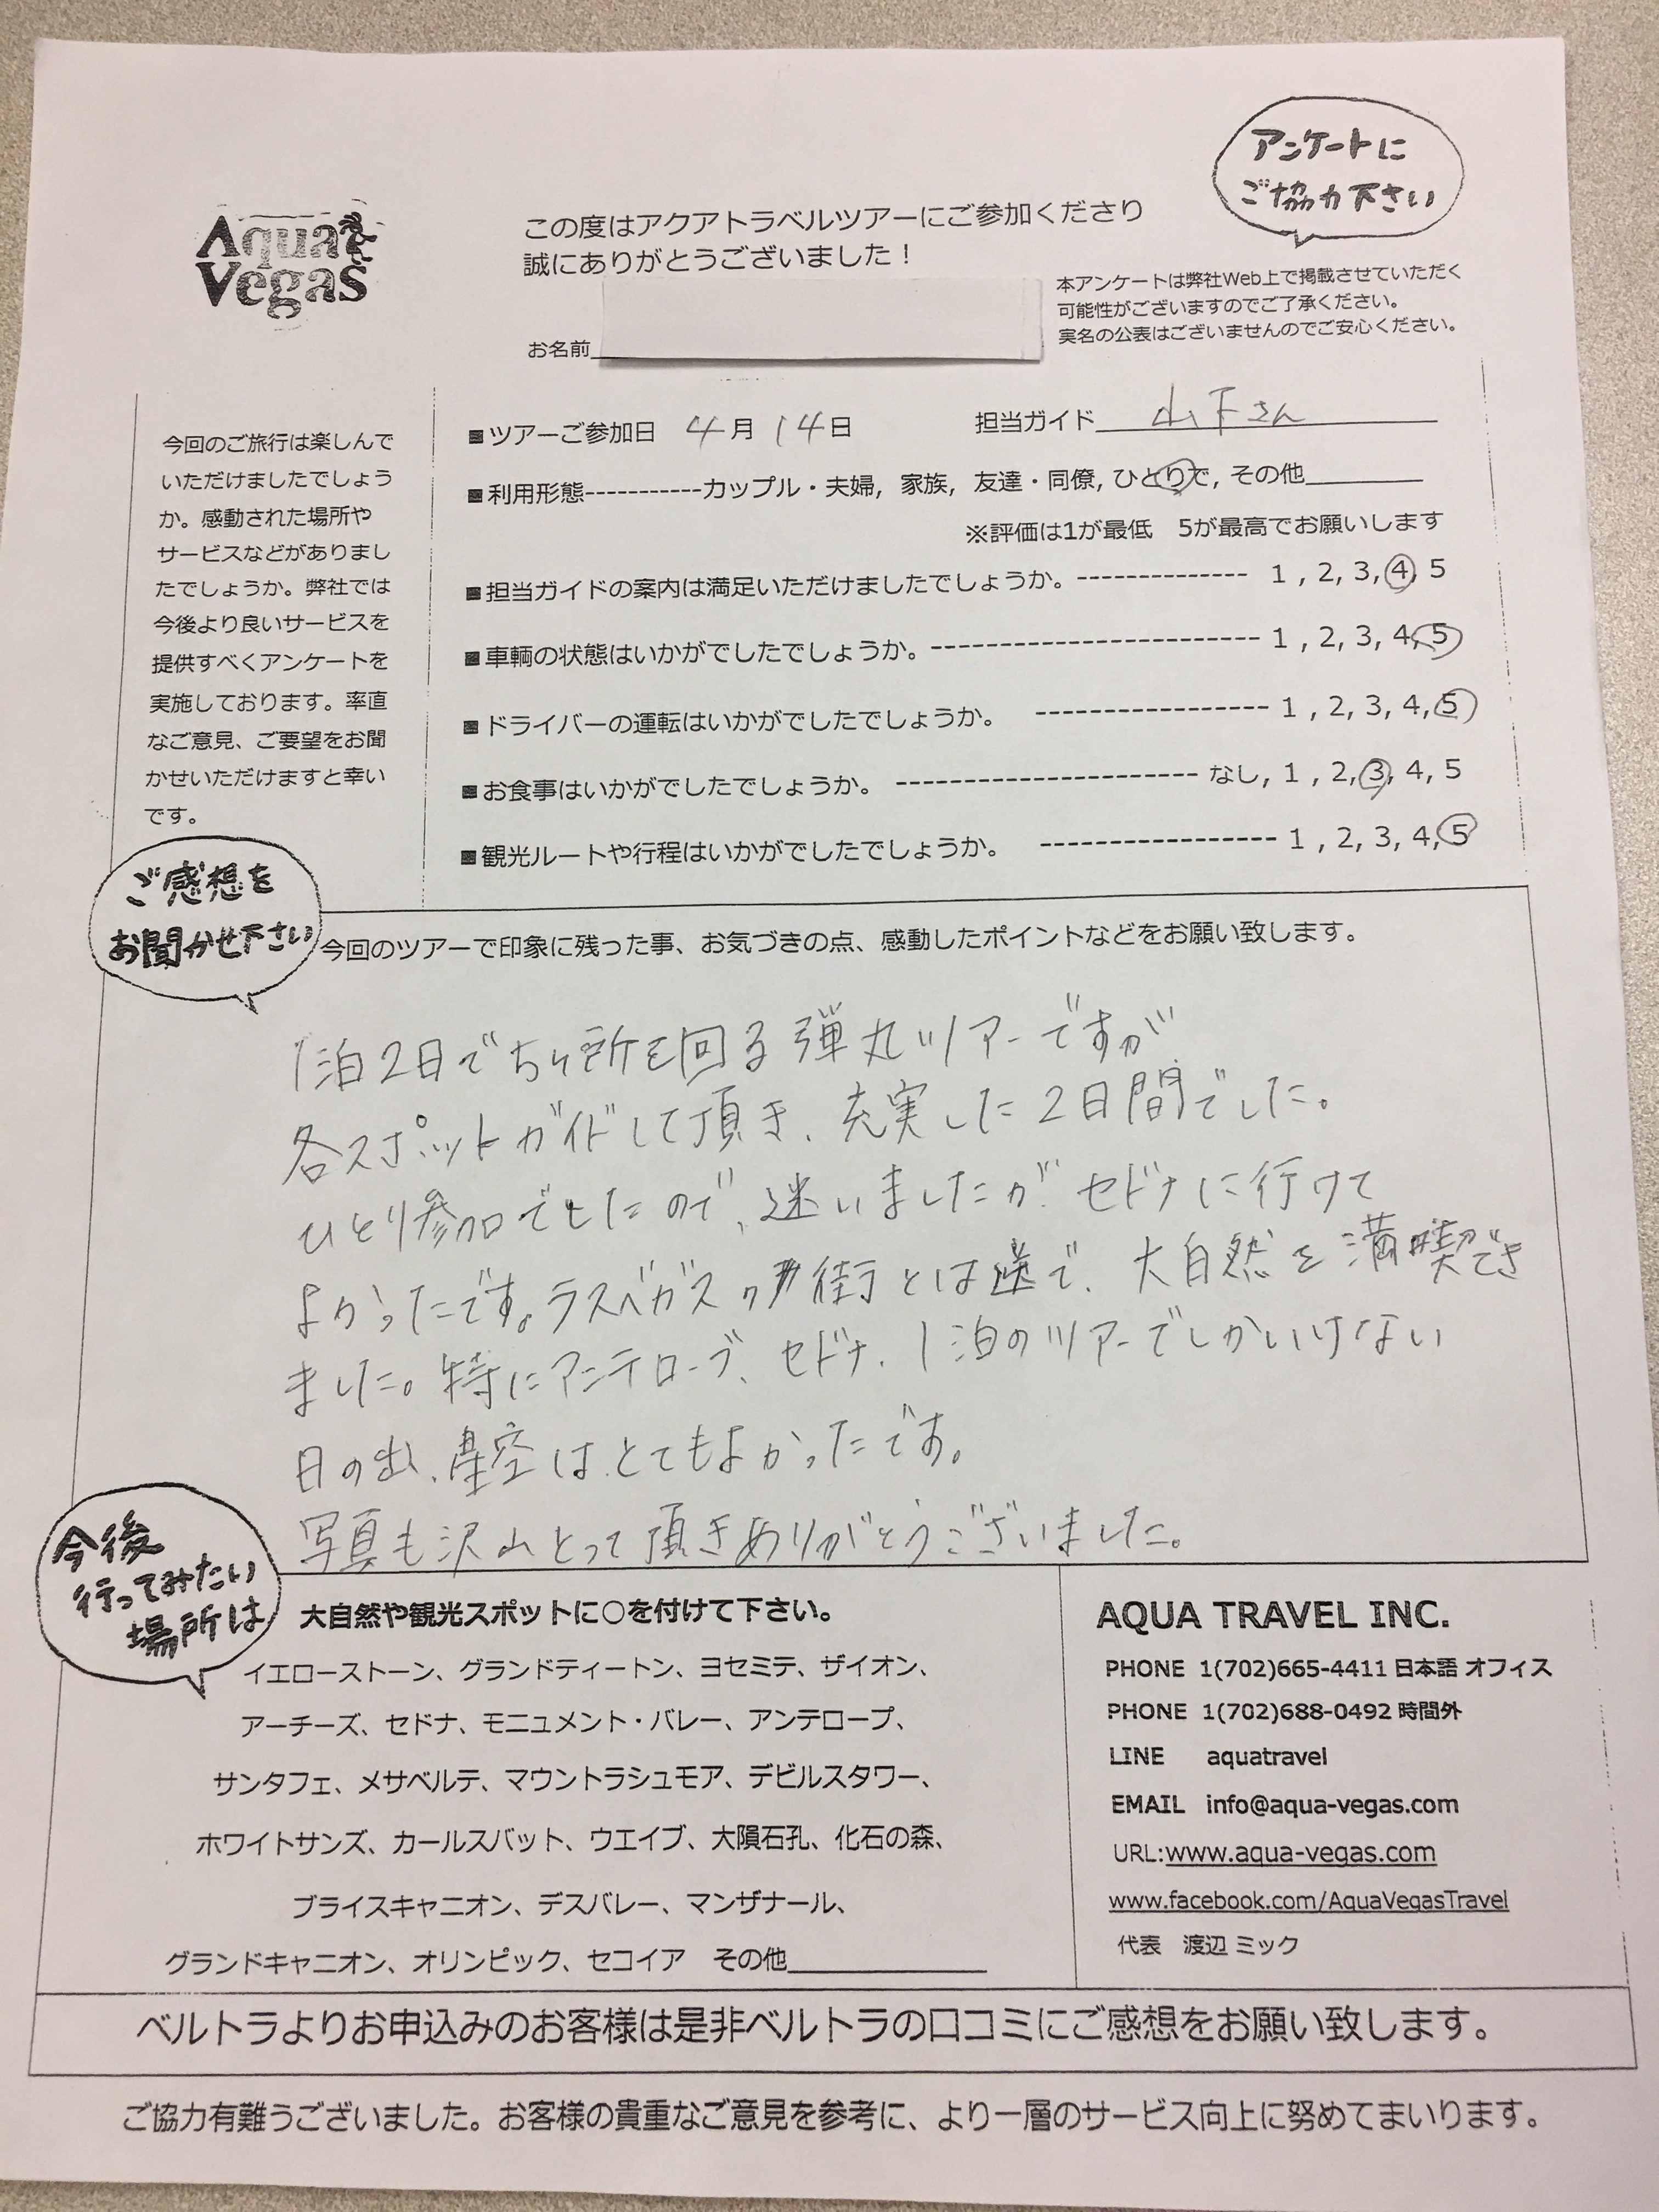 アンケートに
ご協力下さい
Aqua
Vegas
この度はアクアトラベルツアーにご参加くださり
誠にありがとうございました！
本アンケートは弊社Web上で掲載させていただく
可能性がございますのでご了承ください。
実名の公表はございませんのでご安心ください。
お名前
今回のご旅行は楽しんで
いただけましたでしょう
か。感動された場所や
サービスなどがありまし
たでしょうか。弊社では
今後より良いサービスを
提供すべくアンケートを
実施しております。率直
なご意見、ご要望をお聞
かせいただけますと幸い
です。
■ツアーご参加日 4月14日 担当ガイド 山下さん
■利用形態-----------カップル・夫婦, 家族, 友達・同僚, ひとりで, その他
※評価は1が最低 5が最高でお願いします
■担当ガイドの案内は満足いただけましたでしょうか。-------------- 1 , 2, 3, 4, 5
■車輌の状態はいかがでしたでしょうか。------------------------ 1 , 2, 3, 4, 5
■ドライバーの運転はいかがでしたでしょうか。 ----------------- 1 , 2, 3, 4, 5
■お食事はいかがでしたでしょうか。 ---------------------- なし, 1 , 2, 3, 4, 5
■観光ルートや行程はいかがでしたでしょうか。 ----------------- 1 , 2, 3, 4, 5
ご感想を
お聞かせ下さい
今回のツアーで印象に残った事、お気づきの点、感動したポイントなどをお願い致します。
1泊2日で5ヶ所を回る弾丸ツアーですが
各スポットガイドして頂き、充実した2日間でした。
ひとり参加でしたので、迷いましたが、セドナに行けて
よかったです。ラスベガスの街とは逆で、大自然を満喫でき
ました。特にアンテロープ、セドナ、1泊のツアーでしかいけない
日の出、星空はとてもよかったです。
写真も沢山とって頂きありがとうございました。
今後
行ってみたい
場所は
大自然や観光スポットに○を付けて下さい。
イエローストーン、グランドティートン、ヨセミテ、ザイオン、
アーチーズ、セドナ、モニュメント・バレー、アンテロープ、
サンタフェ、メサベルテ、マウントラシュモア、デビルスタワー、
ホワイトサンズ、カールスバット、ウエイブ、大隕石孔、化石の森、
ブライスキャニオン、デスバレー、マンザナール、
グランドキャニオン、オリンピック、セコイア その他
AQUA TRAVEL INC.
PHONE 1(702)665-4411 日本語 オフィス
PHONE 1(702)688-0492 時間外
LINE aquatravel
EMAIL info@aqua-vegas.com
URL:www.aqua-vegas.com
www.facebook.com/AquaVegasTravel
代表 渡辺 ミック
ベルトラよりお申込みのお客様は是非ベルトラの口コミにご感想をお願い致します。
ご協力有難うございました。お客様の貴重なご意見を参考に、より一層のサービス向上に努めてまいります。